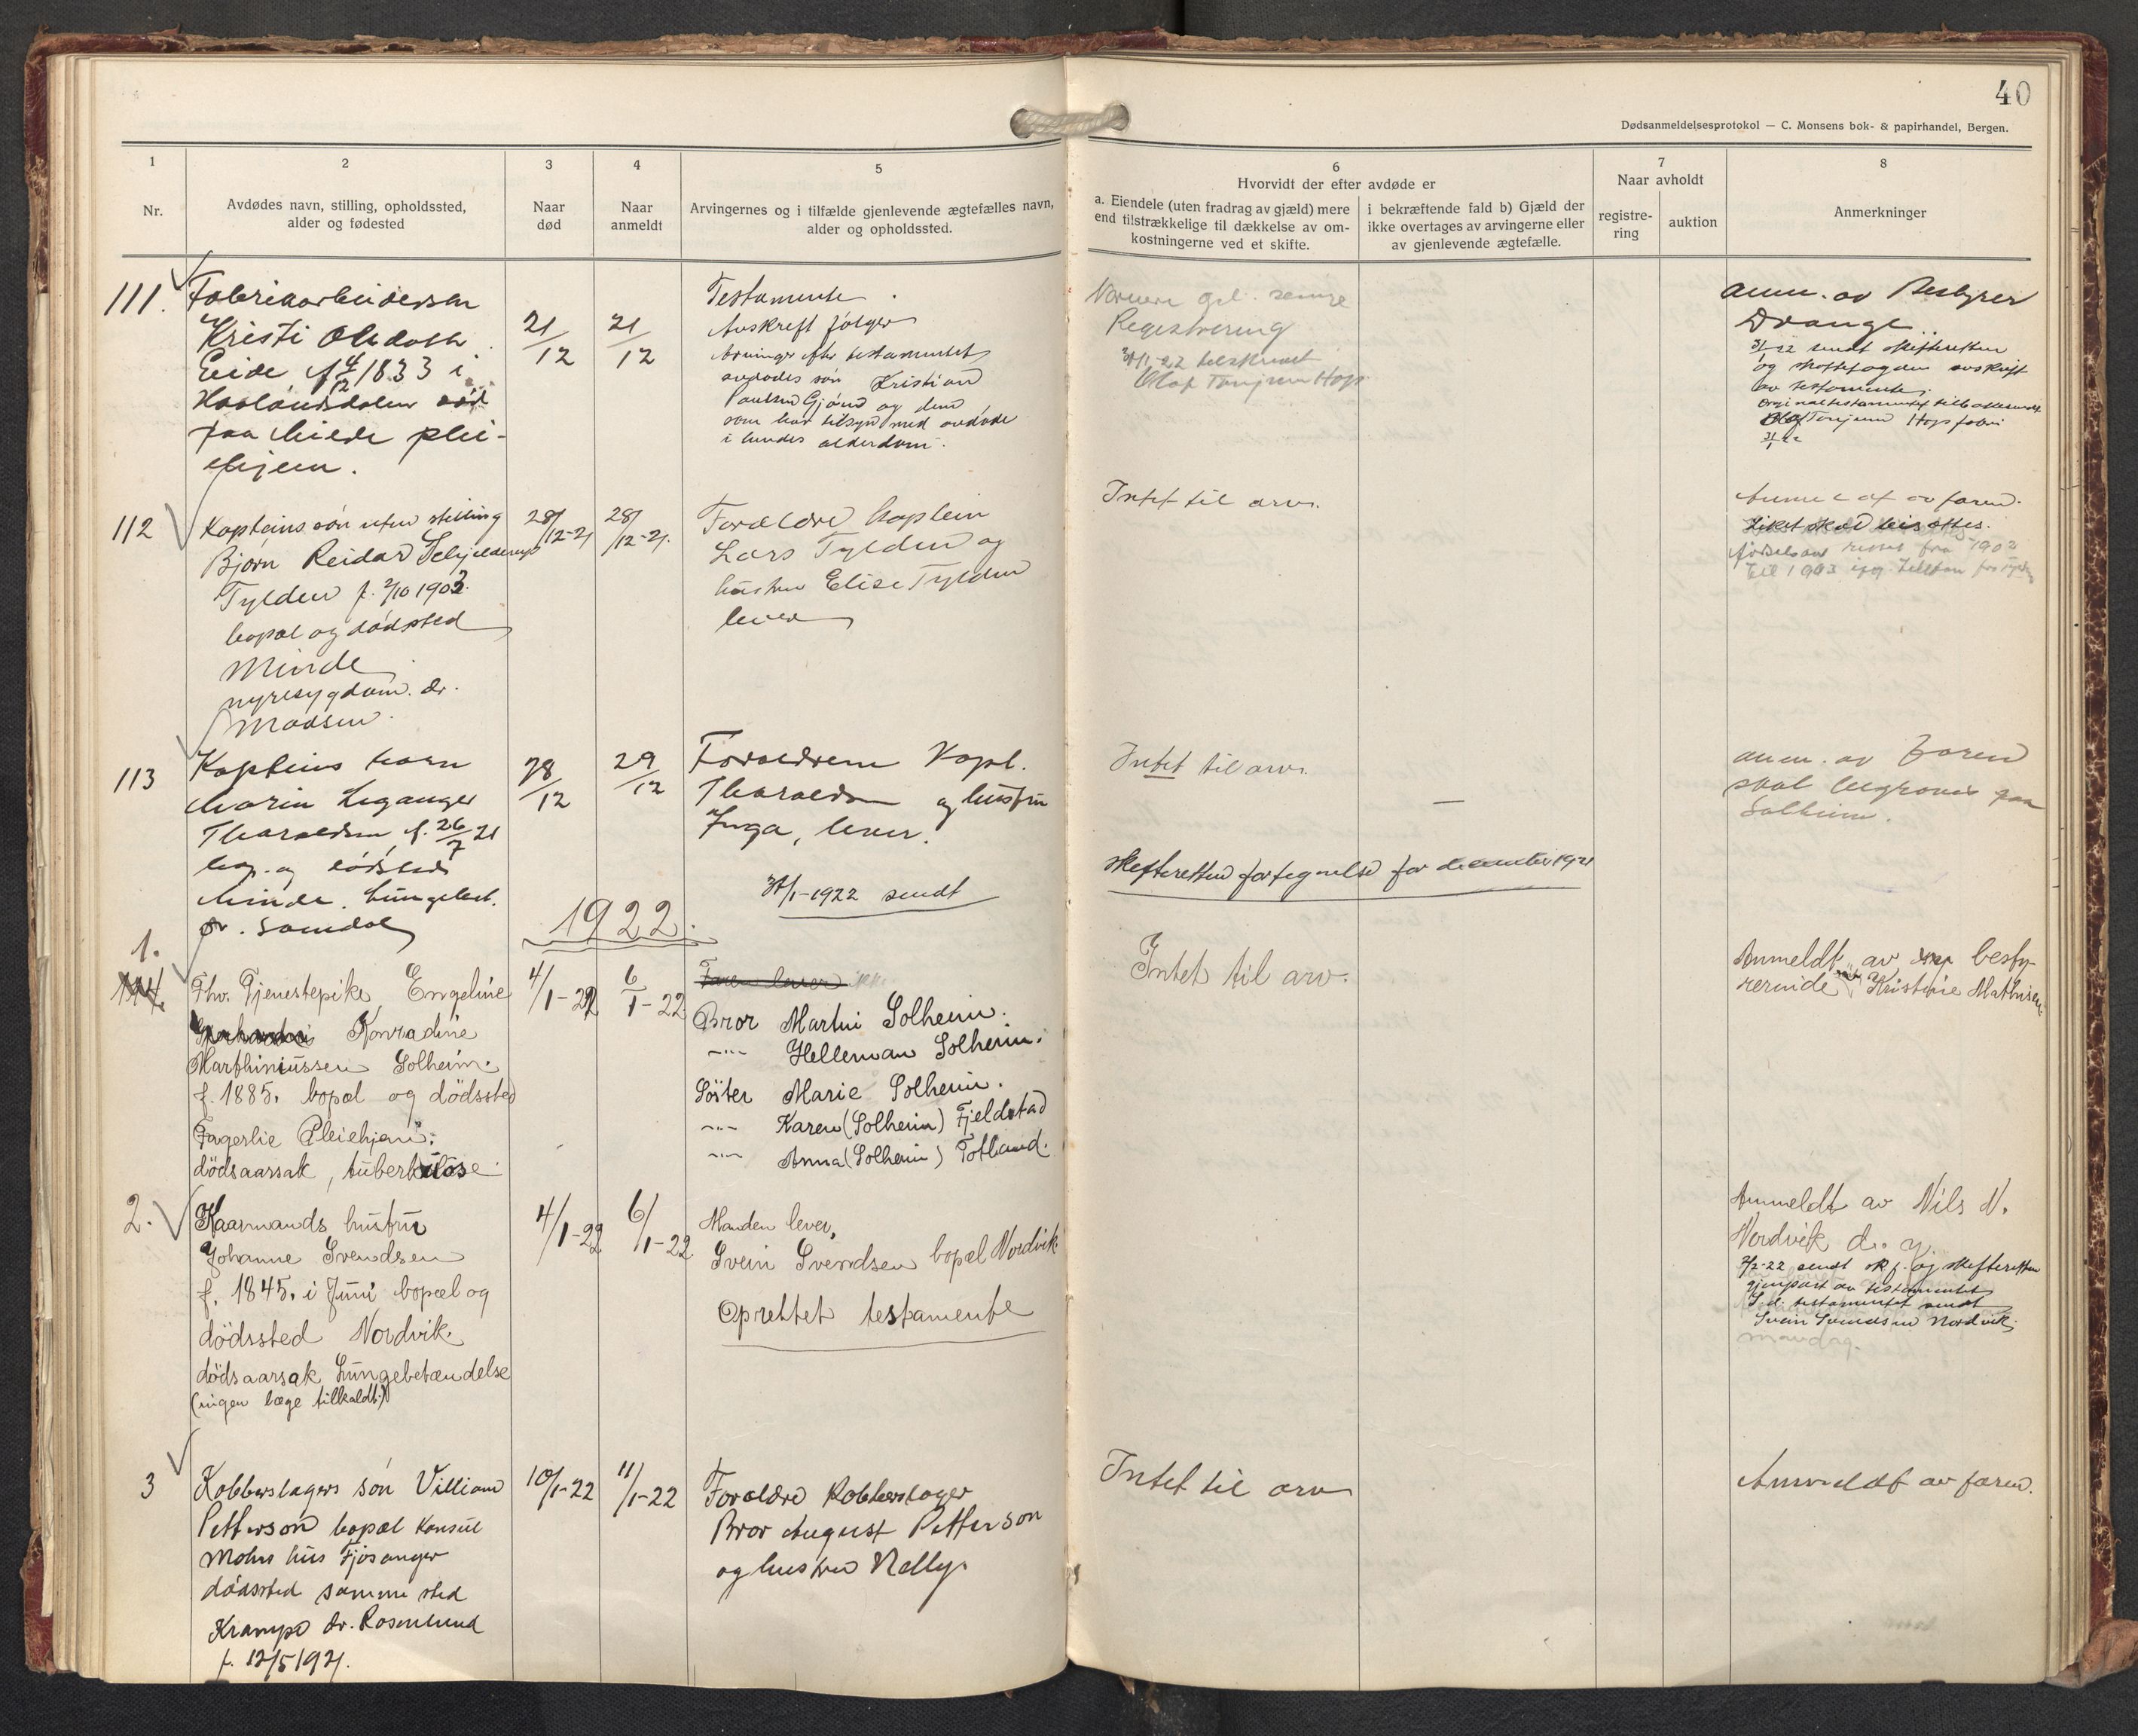 40
Dødsanmeldelsesprotokol — C. Monsens bok- & papirhandel, Bergen.
1
Nr.
2
Avdødes navn, stilling, opholdssted,
alder og fødested
3
Naar
død
4
Naar
anmeldt
5
Arvingernes og i tilfælde gjenlevende ægtefælles navn,
alder og opholdssted.
6
Hvorvidt der efter avdøde er
a. Eiendele (uten fradrag av gjæld) mere
end tilstrækkelige til dækkelse av om-
kostningerne ved et skifte.
i bekræftende fald b) Gjæld der
ikke overtages av arvingerne eller
av gjenlevende ægtefælle.
7
Naar avholdt
registre-
ring
auktion
8
Anmerkninger
111.
Kristi
Eide f 4/12 1833 i
Haalandsdalen død
paa Minde plei-
ehjem.
21/12
21/12
Testamente
Avskrift følger
Arvinger efter testamentet
avdødes søn Kristian
og dem
som har tilsyn med avdøde
i hendes alderdom.
Registrering
anm. av Bestyrer
Drange
sendt skifteretten
og avskrift
av testamente,
112
Kapteins søn uten stilling
Bjørn Reidar
Tylden f. 2/10 1903.
bopæl og dødssted
Minde
nyresygdom. dr.
Madsen.
28/12-21
28/12-21.
Forældre kaptein
Lars Tylden og
hustru Elise Tylden
lever
Intet til arv.
av faren.
Liket skal
fødselsaar rettet fra 1902
til 1903
113
Kapteins barn
Marin Leganger
Tharaldsen, f. 26/7 21
bop. og dødssted
Minde. Lungebet.
dr. Samdal
28/12
29/12
Forældrene Kapt.
Tharaldsen og hustru
Inga, lever.
Intet til arv.
—
anm. av faren
skal begraves paa
Solheim.
1922 sendt
skifteretten fortegnelse for december 1921
1922.
1.
114.
Fhv. Tjenestepike Engeline
Konradine
Marthiniussen Solheim.
f. 1885. bopæl og dödssted
Fagerlie Pleiehjem.
dödsaarsak, tuberkulose.
4/1-22
6/1-22
Faren lever ikke
Bror Martin Solheim.
—"— Helleman Solheim.
Söster Marie Solheim.
—"— Karen (Solheim) Fjeldstad
—"— Anna (Solheim) Totland.
Intet til arv.
Anmeldt av besty-
rerinde Kristine Mathisen.
2.
Kaarmands hustru
Johanne Svendsen
f. 1845. i Juni bopæl og
dödssted Nordvik.
dödsaarsak Lungebetændelse
(ingen læge tilkaldt.)
4/1-22
6/1-22
Manden lever,
Svein Svendsen bopæl Nordvik
Oprettet testamente
Anmeldt av Nils N.
Nordvik d. y.
2/2-22 sendt sk.f. og skifteretten
gjenpart av testamentet
testamentet sendt
Svein Svendsen Nordvik,
mandag.
3
Kobberslagers søn Villiam
Petterson bopæl Konsul
Mohrs hus Fjøsanger
dødssted samme sted
Krampe dr. Rosenlund
f. 12/5 1921.
10/1-22
11/1-22
Forældre Kobberslager
Bror August Petterson
og hustru Nelly.
Intet til arv
Anmeldt av faren.